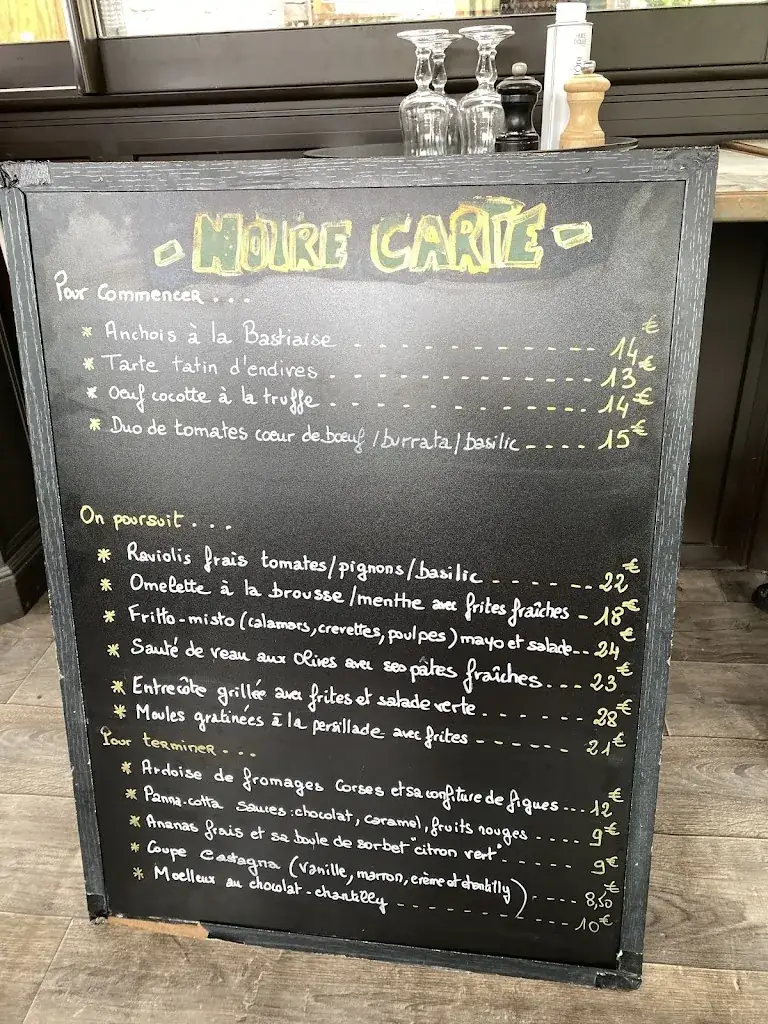 - NOTRE CARTE -
Pour commencer...
* Anchois à la Bastiaise ------------- 14€
* Tarte tatin d'endives ------------- 13€
* Oeuf cocotte à la truffe ------------- 14€
* Duo de tomates coeur de boeuf / burrata / basilic ---- 15€
On poursuit...
* Raviolis frais tomates/pignons/basilic ------- 22€
* Omelette à la brousse/menthe avec frites fraîches - 18€
* Fritto-misto (calamars, crevettes, poulpes) mayo et salade-- 24€
* Sauté de veau aux Olives avec ses pâtes fraîches.--- 23€
* Entrecôte grillée avec frites et salade verte ------- 28€
* Moules gratinées à la persillade avec frites ------- 21€
Pour terminer...
* Ardoise de fromages Corses et sa confiture de figues --- 12€
* Panna-cotta sauces: chocolat, caramel, fruits rouges ----- 9€
* Ananas frais et sa boule de sorbet "citron vert" ------ 9€
* Coupe Castagna (vanille, marron, crème et chantilly) ----- 8,50€
* Moelleux au chocolat-chantilly ------------- 10€